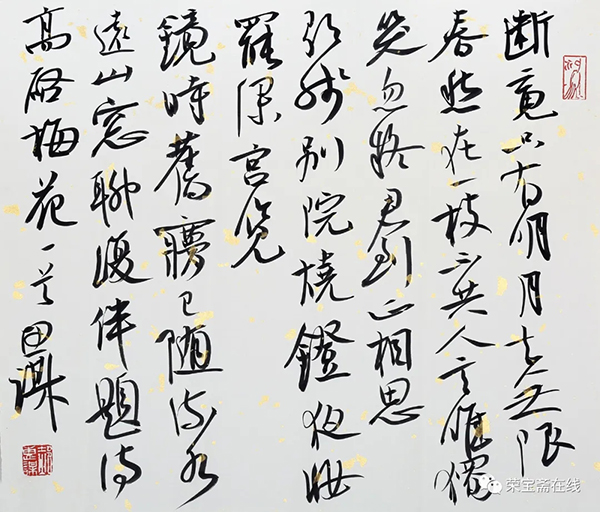 断魂只有明月知无限
春愁在一枝不共人言唯独
笑忽疑君到正相思
歌残别院燒鐙夜妆
罷深宫览
鏡時舊夢已随流水
遠山窓聊復伴題诗
高启梅花一首田
荣宝斋在线